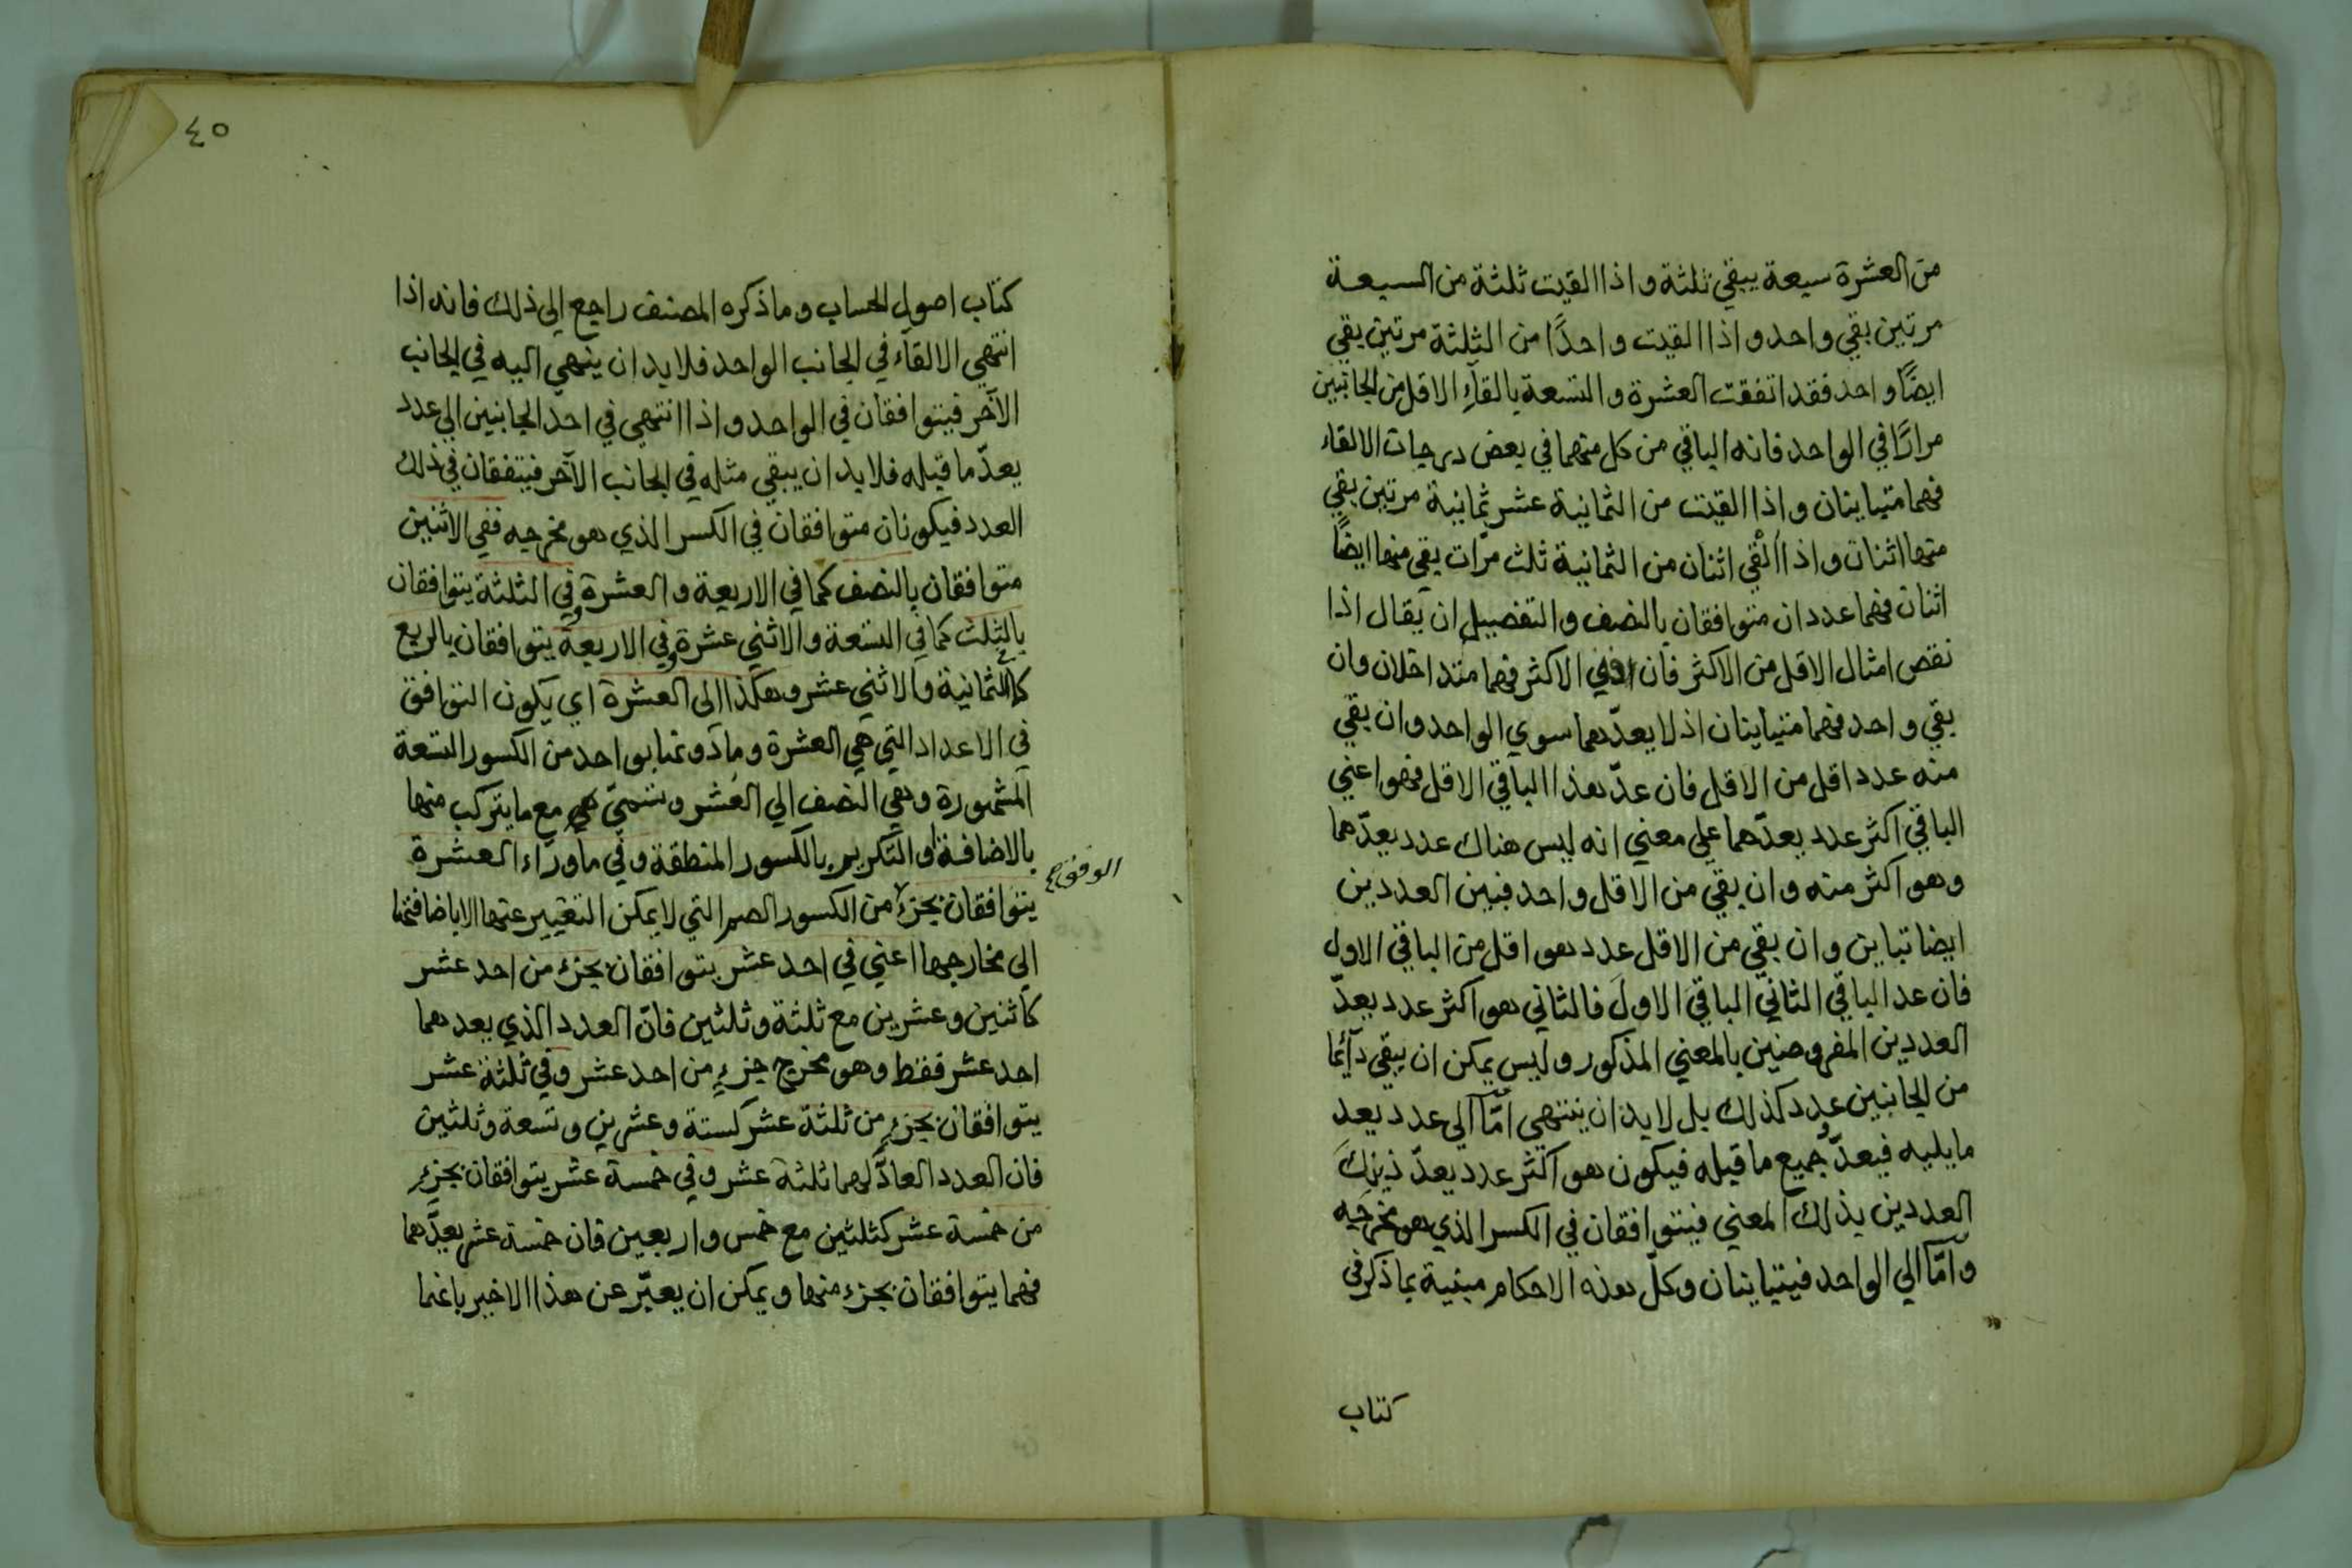 من العشرة سبعة يبقي ثلثة واذا القيت ثلثة من السبعة
مرتين بقي واحد واذا القيت واحدًا من الثلثة مرتين بقي
ايضًا واحد فقد اتفقت العشرة والتسعة بالقاء الاقل من الجانبين
مرارًا في الواحد فانه الباقي من كل منهما في بعض درجات الالقاء
فهما متباينان واذا القيت من الثمانية عشر ثمانية مرتين بقي
منها اثنان واذا القي اثنان من الثمانية ثلث مرّات بقي منها ايضًا
اثنان فهما عددان متوافقان بالنصف والتفصيل ان يقال اذا
نقص امثال الاقل من الاكثر فان افني الاكثر فهما متداخلان وان
بقي واحد فهما متباينان اذ لا يعدّهما سوي الواحد وان بقي
منه عدد اقل من الاقل فان عدّ هذا الباقي الاقل فهو اعني
الباقي اكثر عدد يعدّهما علي معني انه ليس هناك عدد يعدّهما
وهو اكثر منه وان بقي من الاقل واحد فبين العددين
ايضا تباين وان بقي من الاقل عدد هو اقل من الباقي الاول
فان عد الباقي الثاني الباقي الاول فالثاني هو اكثر عدد يعدّ
العددين المفروضين بالمعني المذكور وليس يمكن ان يبقي دآئما
من الجانبين عدد كذلك بل لابد ان ينتهي امّا الي عدد يعد
ما يليه فيعدّ جميع ما قبله فيكون هو اكثر عدد يعدّ ذينك
العددين بذلك المعني فيتوافقان في الكسر الذي هو مخرجه
وامّا الي الواحد فيتباينان وكلّ هذه الاحكام مبنية بما ذكر في
كتاب
٤٥
كتاب اصول الحساب وما ذكره المصنف راجع الي ذلك فانه اذا
انتهي الالقآء في الجانب الواحد فلابد ان ينهي اليه في الجانب
الآخر فيتوافقان في الواحد واذا انتهي في احد الجانبين الي عدد
يعدّ ما قبله فلابد ان يبقي مثله في الجانب الآخر فيتفقان في ذلك
العدد فيكونان متوافقان في الكسر الذي هو مخرجه ففي الاثنين
متوافقان بالنصف كما في الاربعة والعشرة وفي الثلثة يتوافقان
بالثلث كما في التسعة والاثني عشرة وفي الاربعة يتوافقان بالربع
كالثمانية والاثني عشر وهكذا الي العشرة اي يكون التوافق
في الاعداد التي هي العشرة وما دونها بواحد من الكسور التسعة
المشهورة وهي النصف الي العشر وتسمّي هي مع ما يتركب منها
بالاضافة او التكرير بالكسور المنطقة وفي ما ورآء العشرة
الوفق
يتوافقان بجزء من الكسور الصم التي لا يمكن التعبير عنها الا باضافتها
الي مخارجها اعني في احد عشر يتوافقان بجزء من احد عشر
كاثنين وعشرين مع ثلثة وثلثين فانّ العدد الذي يعدهما
احد عشر فقط وهو مخرج جزء من احد عشر وفي ثلثة عشر
يتوافقان بجزء من ثلثة عشر كستة وعشرين وتسعة وثلثين
فان العدد العادّ لهما ثلثة عشر وفي خمسة عشر يتوافقان بجزء
من خمسة عشر كثلثين مع خمس واربعين فان خمسة عشر يعدّهما
فهما يتوافقان بجزء منها ويمكن ان يعبّر عن هذا الاخير